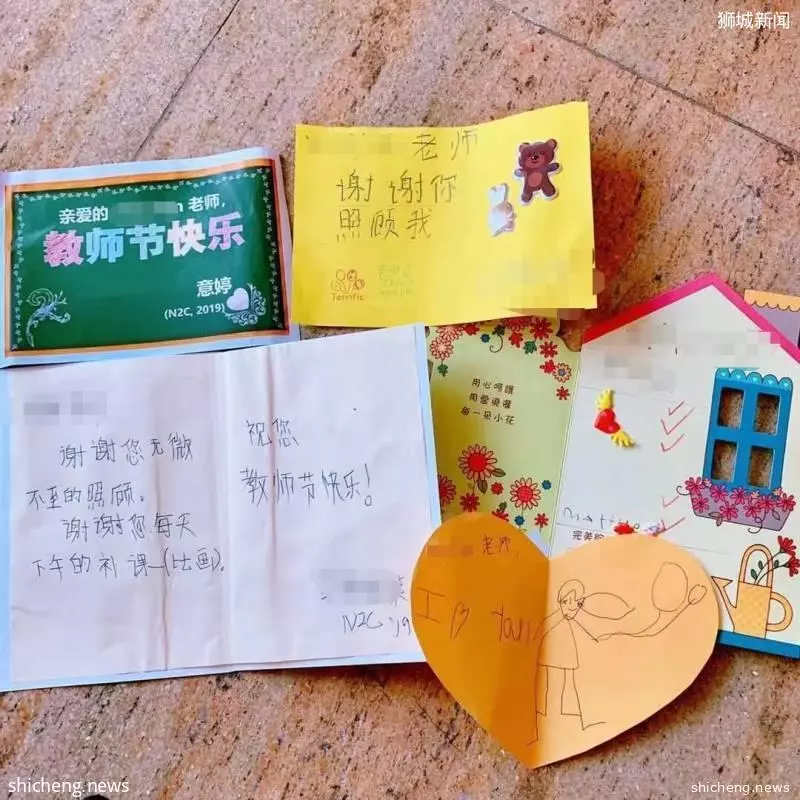 狮城新闻
亲爱的
n 老师,
教师节快乐
意婷
(N2C, 2019)
老师
谢谢你
照顾我
Terrific
用心呵護
用愛澆灌
每一朵小花
谢谢您无微
不至的照顾。
谢谢您每天
下午的补课
祝您
教师节快乐!
菜
N2C '19
完美的
老师,
I
You
shicheng.news
shicheng.news